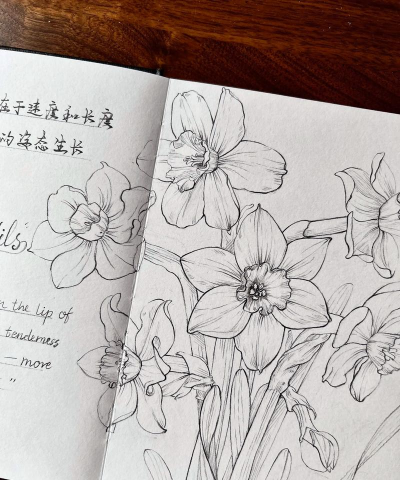 在于速度和长度
的姿态生长
ils
n the lip of
tenderness
— more
"